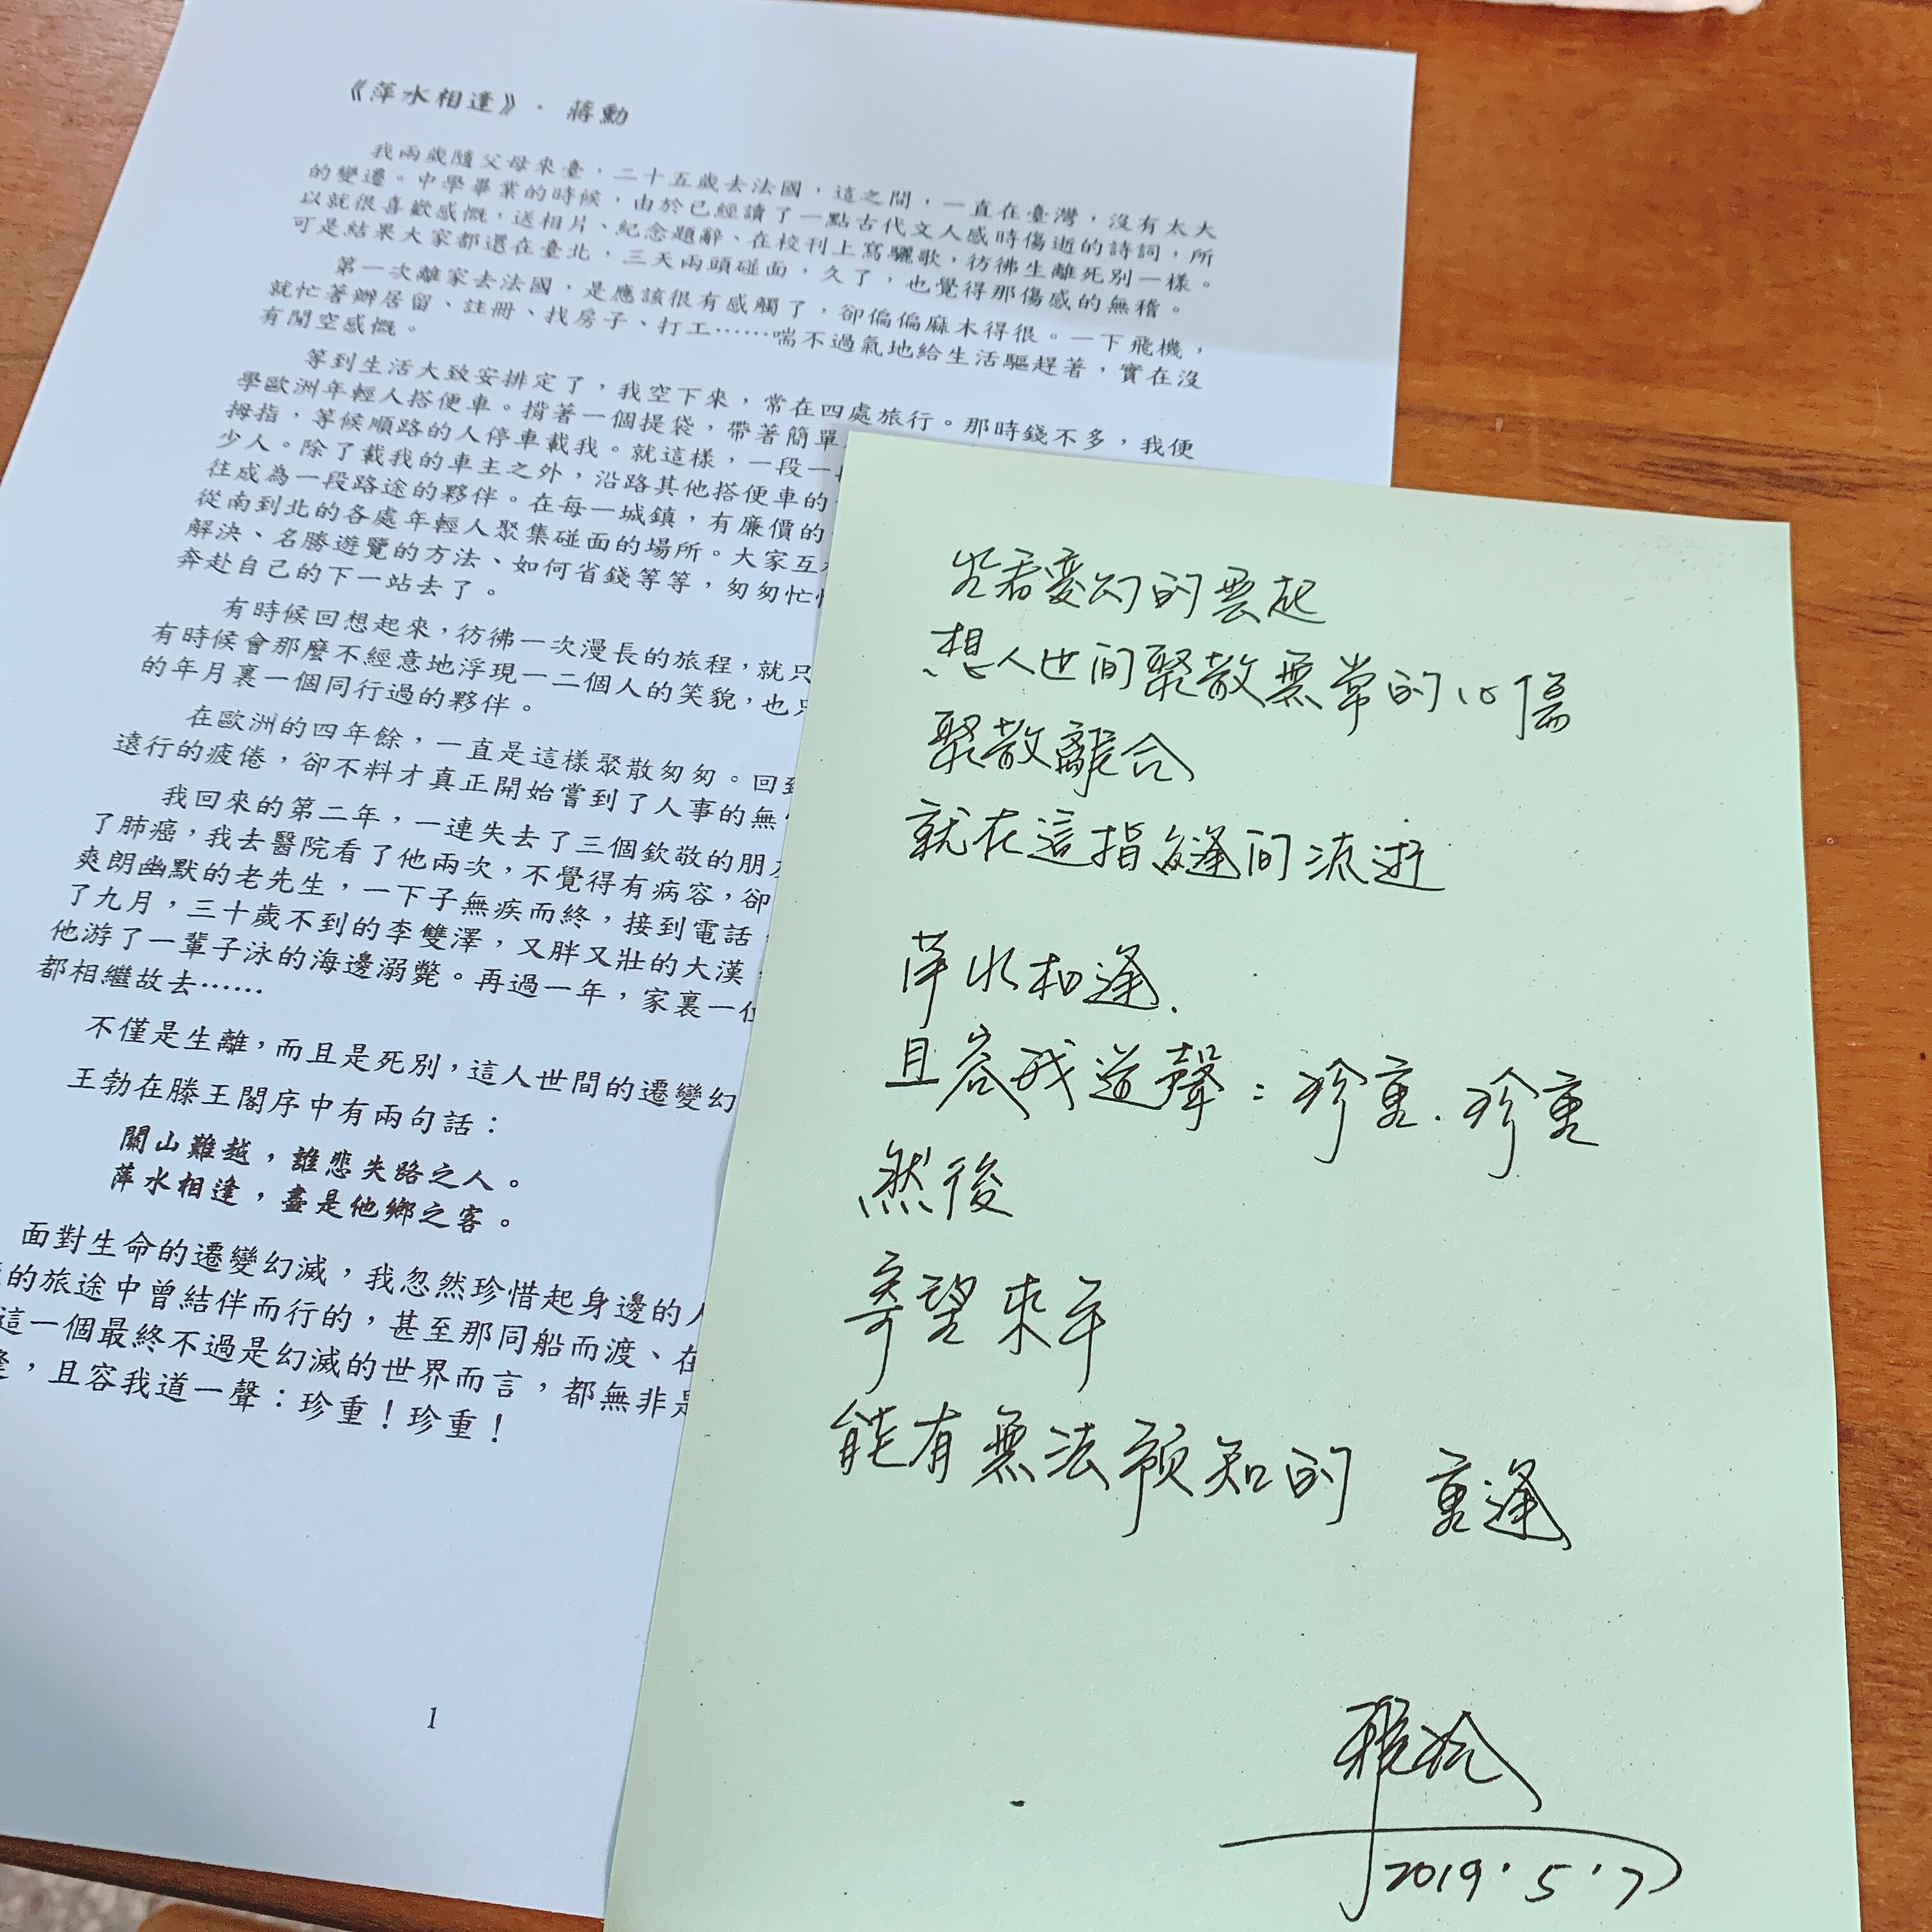 《萍水相逢》· 蔣勳
我兩歲隨父母來臺，二十五歲去法國，這之間，一直在臺灣，沒有太大
的變遷。中學畢業的時候，由於已經讀了一點古代文人感時傷逝的詩詞，所
以就很喜歡感慨，送相片、紀念題辭、在校刊上寫驪歌，彷彿生離死別一樣。
可是結果大家都還在臺北，三天兩頭碰面，久了，也覺得那傷感的無稽。
第一次離家去法國，是應該很有感觸了，卻偏偏麻木得很。一下飛機，
就忙著辦居留、註冊、找房子、打工……喘不過氣地給生活驅趕著，實在沒
有閒空感慨。
等到生活大致安排定了，我空下來，常在四處旅行。那時錢不多，我便
學歐洲年輕人搭便車。揹著一個提袋，帶著簡單
拇指，等候順路的人停車載我。就這樣，一段一
少人。除了載我的車主之外，沿路其他搭便車的
往成為一段路途的夥伴。在每一城鎮，有廉價的
從南到北的各處年輕人聚集碰面的場所。大家互
解決、名勝遊覽的方法、如何省錢等等，匆匆忙
奔赴自己的下一站去了。
有時候回想起來，彷彿一次漫長的旅程，就只
有時候會那麼不經意地浮現一二個人的笑貌，也只
的年月裏一個同行過的夥伴。
在歐洲的四年餘，一直是這樣聚散匆匆。回到
遠行的疲倦，卻不料才真正開始嘗到了人事的無
我回來的第二年，一連失去了三個欽敬的朋
了肺癌，我去醫院看了他兩次，不覺得有病容，卻
爽朗幽默的老先生，一下子無疾而終，接到電話
了九月，三十歲不到的李雙澤，又胖又壯的大漢，
他游了一輩子泳的海邊溺斃。再過一年，家裏一位
都相繼故去……
不僅是生離，而且是死別，這人世間的遷變幻
王勃在滕王閣序中有兩句話：
關山難越，誰悲失路之人。
萍水相逢，盡是他鄉之客。
面對生命的遷變幻滅，我忽然珍惜起身邊的人
的旅途中曾結伴而行的，甚至那同船而渡、在
這一個最終不過是幻滅的世界而言，都無非是
逢，且容我道一聲：珍重！珍重！
1
坐看變幻的雲起
想人世間聚散無常的心傷
聚散離合
就在這指縫間流逝
萍水相逢.
且容我道聲：珍重.珍重
然後
寄望來年
能有無法預知的 重逢
2019.5.7